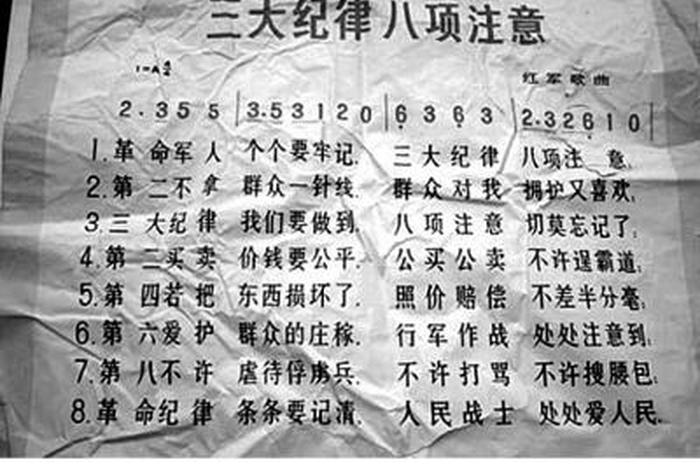 三大纪律八项注意
1=A 4/4
红军歌曲
2·35 5 | 3·5 3 1 2 0 | 6 3 6 3 | 2·3 2 6 1 0 |
1.革 命军人 个个要牢记. 三大纪律 八项注 意;
2.第 二不拿 群众一针线. 群众对我 拥护又喜欢;
3.三 大纪律 我们要做到. 八项注意 切莫忘记了;
4.第 二买卖 价钱要公平. 公买公卖 不许逞霸道;
5.第 四若把 东西损坏了. 照价赔偿 不差半分毫;
6.第 六爱护 群众的庄稼. 行军作战 处处注意到;
7.第 八不许 虐待俘虏兵. 不许打骂 不许搜腰包;
8.革 命纪律 条条要记清. 人民战士 处处爱人民.